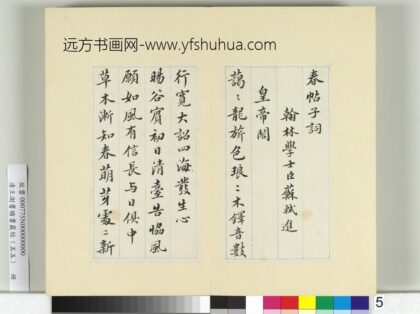 远方书画网-www.yfshuhua.com
春帖子詞
翰林學士臣蘇軾進
皇帝閣
藹〻龍旂色琅〻木鐸音數
行寬大詔四海發生心
暘谷賓初日清臺告協風
願如風有信長與日俱中
草木漸知春萌芽處〻新
清王澍書積書巖帖(五五) 冊
5